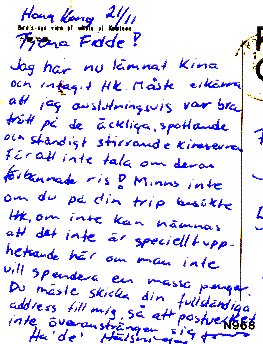 Hong Kong 21/11
Tjena Fidde!
Jag har nu lämnat Kina
och intagit HK. Måste erkänna
att jag avslutningsvis var bra
trött på de äckliga, spottande
och ständigt stirrande kineserna
för att inte tala om deras
förbannade ris! Minns inte
om du på din trip besökte
HK, om inte kan nämnas
att det inte är speciellt upp-
hetsande här om man inte
vill spendera en massa pengar.
Du måste skicka din fullständiga
address till mig, så att postverket
inte överanstränger sig
Ha de!
N968